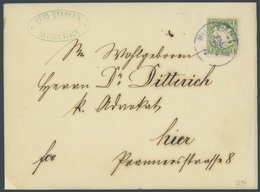 OTTO STADLER
MÜNCHEN
Sr. Wohlgeboren
Herrn Dr. Ditterich
k. Advokat
hier
fco Prannersstrasse 8